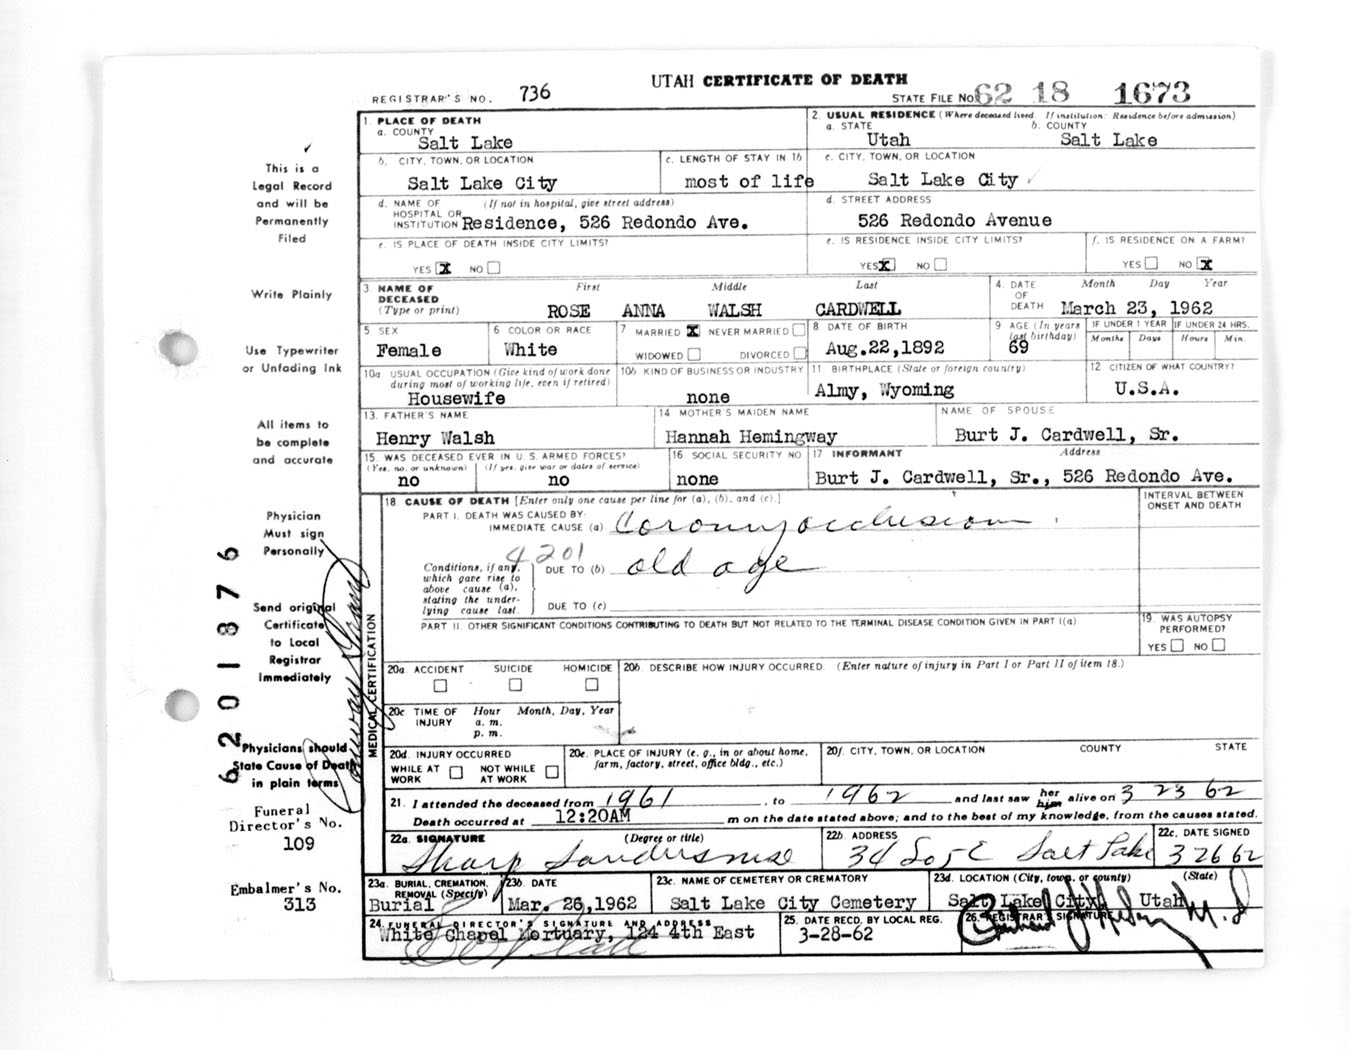 UTAH CERTIFICATE OF DEATH
REGISTRAR'S NO. 736
STATE FILE NO. 62 18 1673
1. PLACE OF DEATH
a. COUNTY
Salt Lake
2. USUAL RESIDENCE (Where deceased lived. If institution: Residence before admission)
a. STATE b. COUNTY
Utah Salt Lake
b. CITY, TOWN, OR LOCATION
Salt Lake City
c. LENGTH OF STAY IN 1b
most of life
c. CITY, TOWN, OR LOCATION
Salt Lake City
d. NAME OF (If not in hospital, give street address)
HOSPITAL OR
INSTITUTION Residence, 526 Redondo Ave.
d. STREET ADDRESS
526 Redondo Avenue
e. IS PLACE OF DEATH INSIDE CITY LIMITS?
YES X NO
e. IS RESIDENCE INSIDE CITY LIMITS?
YES X NO
f. IS RESIDENCE ON A FARM?
YES NO X
3 NAME OF DECEASED
(Type or print)
First Middle Last
ROSE ANNA WALSH CARDWELL
4. DATE OF DEATH
Month Day Year
March 23, 1962
5 SEX
Female
6 COLOR OR RACE
White
7 MARRIED X NEVER MARRIED
WIDOWED DIVORCED
8 DATE OF BIRTH
Aug.22,1892
9 AGE (In years last birthday)
69
IF UNDER 1 YEAR IF UNDER 24 HRS.
Months Days Hours Min.
10a. USUAL OCCUPATION (Give kind of work done
during most of working life, even if retired)
Housewife
10b. KIND OF BUSINESS OR INDUSTRY
none
11 BIRTHPLACE (State or foreign country)
Almy, Wyoming
12 CITIZEN OF WHAT COUNTRY?
U.S.A.
13. FATHER'S NAME
Henry Walsh
14 MOTHER'S MAIDEN NAME
Hannah Hemingway
NAME OF SPOUSE
Burt J. Cardwell, Sr.
15 WAS DECEASED EVER IN U. S. ARMED FORCES?
(Yes, no, or unknown) (If yes, give war or dates of service)
no no
16 SOCIAL SECURITY NO
none
17 INFORMANT Address
Burt J. Cardwell, Sr., 526 Redondo Ave.
18 CAUSE OF DEATH [Enter only one cause per line for (a), (b), and (c).]
INTERVAL BETWEEN
ONSET AND DEATH
PART I. DEATH WAS CAUSED BY:
IMMEDIATE CAUSE (a) Coronary occlusion
4201
Conditions, if any,
which gave rise to
above cause (a),
stating the under-
lying cause last.
DUE TO (b) old age
DUE TO (c)
PART II. OTHER SIGNIFICANT CONDITIONS CONTRIBUTING TO DEATH BUT NOT RELATED TO THE TERMINAL DISEASE CONDITION GIVEN IN PART I(a)
19. WAS AUTOPSY
PERFORMED?
YES NO
20a. ACCIDENT SUICIDE HOMICIDE
20b. DESCRIBE HOW INJURY OCCURRED. (Enter nature of injury in Part I or Part II of item 18.)
20c. TIME OF INJURY
Hour Month, Day, Year
a. m.
p. m.
20d. INJURY OCCURRED
WHILE AT WORK NOT WHILE AT WORK
20e. PLACE OF INJURY (e. g., in or about home,
farm, factory, street, office bldg., etc.)
20f. CITY, TOWN, OR LOCATION COUNTY STATE
21. I attended the deceased from 1961, to 1962 and last saw her him alive on 3 23 62
Death occurred at 12:20AM m on the date stated above; and to the best of my knowledge, from the causes stated.
22a. SIGNATURE (Degree or title)
Sharp Sanders
22b. ADDRESS
34 So 5 E Salt Lake
22c. DATE SIGNED
3 26 62
23a. BURIAL, CREMATION,
REMOVAL (Specify)
Burial
23b. DATE
Mar. 26,1962
23c. NAME OF CEMETERY OR CREMATORY
Salt Lake City Cemetery
23d. LOCATION (City, town, or county) (State)
Salt Lake City, Utah
24. FUNERAL DIRECTOR'S SIGNATURE AND ADDRESS
White Chapel Mortuary, 124 4th East
25. DATE RECD. BY LOCAL REG.
3-28-62
26. REGISTRAR'S SIGNATURE
M. D
MEDICAL CERTIFICATION
This is a
Legal Record
and will be
Permanently
Filed
Write Plainly
Use Typewriter
or Unfading Ink
All items to
be complete
and accurate
Physician
Must sign
Personally
Send original
Certificate
to Local
Registrar
Immediately
Physicians should
State Cause of Death
in plain terms
Funeral
Director's No.
109
Embalmer's No.
313
6201876